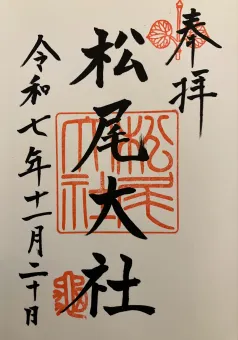 奉拝
松尾大社
令和七年十一月二十日
松尾大社